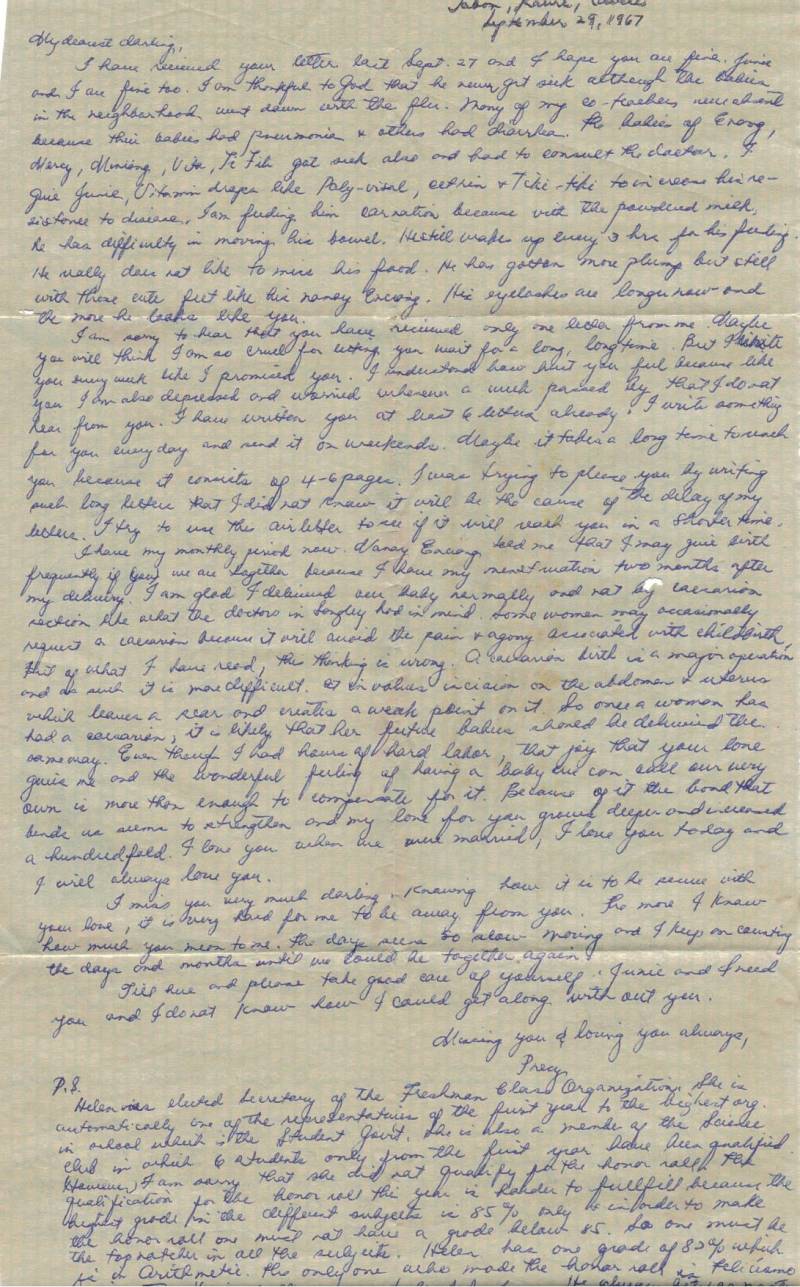 September 29, 1967
My dearest darling,
I have received your letter last Sept. 27 and I hope you are fine. Junie
and I are fine too. I am thankful to God that he never got sick although the babies
in the neighborhood went down with the flu. Many of my co-teachers were absent
because their babies had pneumonia & others had diarrhea. The babies of
Mercy, Vita, got sick also and had to consult the doctor. I
give Junie, Vitamin drops like Poly-vital, & Tiki-tiki to increase his re-
sistance to disease. I am feeding him carnation because with the powdered milk,
he has difficulty in moving his bowel. He still wakes up every 3 hrs for his feeding.
He really does not like to miss his food. He has gotten more plump but still
with those cute feet like his nanay. His eyelashes are longer now and
the more he looks like you.
I am sorry to hear that you have received only one letter from me. Maybe
you will think I am so cruel for letting you wait for a long, long time. But I write
you every week like I promised you. I understand how hurt you feel because like
you I am also depressed and worried whenever a week passed by that I do not
hear from you. I have written you at least 6 letters already. I write something
for you everyday and send it on weekends. Maybe it takes a long time to reach
you because it consists of 4-6 pages. I was trying to please you by writing
such long letters that I did not know it will be the cause of the delay of my
letters. I try to use this air letter to see if it will reach you in a shorter time.
I have my monthly period now. Nanay told me that I may give birth
frequently if we are together because I have my menstruation two months after
my delivery. I am glad I delivered our baby normally and not by caesarian
section like what the doctors in had in mind. Some women may occasionally
request a caesarian because it will avoid the pain & agony associated with childbirth,
But of what I have read, this thinking is wrong. A caesarian birth is a major operation
and as such it is more difficult. It involves incision on the abdomen & uterus
which leaves a scar and creates a weak point on it. So once a woman has
had a caesarian, it is likely that her future babies should be delivered the
same way. Even though I had hours of hard labor, that joy that your love
gives me and the wonderful feeling of having a baby we can call our very
own is more than enough to compensate for it. Because of it the bond that
binds us seems to strengthen and my love for you grows deeper and increased
a hundredfold. I love you when we were married, I love you today and
I will always love you.
I miss you very much darling. Knowing how it is to be secure with
your love, it is very hard for me to be away from you. The more I know
how much you mean to me. The days seem so slow moving and I keep on counting
the days and months until we could be together again.
Till here and please take good care of yourself. Junie and I need
you and I do not know how I could get along with out you.
Missing you & loving you always,
Precy
P.S.
Helen was elected Secretary of the Freshman Class Organization. She is
automatically one of the representatives of the first year to the highest org.
in school which is the Student Govt. She is also a member of the Science
Club in which 6 students only from the first year have been qualified.
However, I am sorry that she did not qualify for the honor roll. The
qualification for the honor roll this year is harder to fullfill because the
highest grade in the different subjects is 85% only & in order to make
the honor roll one must not have a grade below 85. So one must be
the topnotcher in all the subjects. Helen has one grade of 82% which
is in Arithmetic. The only one who made the honor roll is Felicisimo